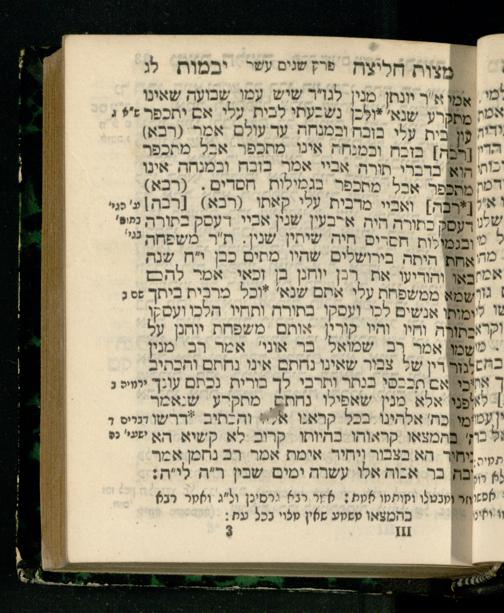 מצות חליצה פרק שנים עשר יבמות לג
אמר א״ר יונתן מנין לגז״ד שיש עמו שבועה שאינו
מתקרע שנא׳ *ולכן נשבעתי לבית עלי אם יתכפר ש״א ג
עון בית עלי בזבח ובמנחה עד עולם אמר (רבא)
[רבה] בזבח ובמנחה אינו מתכפר אבל מתכפר
הוא בדברי תורה אביי אמר בזבח ובמנחה אינו
מתכפר אבל מתכפר בגמילות חסדים. (רבא)
[*רבה] ואביי מדבית עלי קאתו (רבא) [רבה]
דעסק בתורה היה ארבעין שנין אביי דעסק בתורה
ובגמילות חסדים חיה שיתין שנין. ת״ר משפחה
אחת היתה בירושלים שהיו מתים כבן י״ח שנה
באו והודיעו את רבן יוחנן בן זכאי אמר להם
שמא ממשפחת עלי אתם שנא׳ *וכל מרבית ביתך שם ב
ימותו אנשים לכו ועסקו בתורה ותחיו הלכו ועסקו
בתורה וחיו והיו קורין אותם משפחת יוחנן על
שמו אמר רב שמואל בר אוני׳ אמר רב מנין
לגזר דין של צבור שאינו נחתם אינו נחתם והכתיב
כי אם תכבסי בנתר ותרבי לך בורית נכתם עונך ירמיה ב
לפני אלא מנין שאפילו נחתם מתקרע שנאמר
מי כה׳ אלהינו בכל קראנו אליו והכתיב *דרשו דברים ד
ה׳ בהמצאו קראוהו בהיותו קרוב לא קשיא הא ישעי׳ נה
ביחיד הא בצבור ויחיד אימת אמר רב נחמן אמר
רבה בר אבוה אלו עשרה ימים שבין ר״ה לי״ה:
אמת: אמר רבא גרסינן ול״ג ואמר רבא
בהמצאו משמע שאין מצוי בכל עת:
3 III